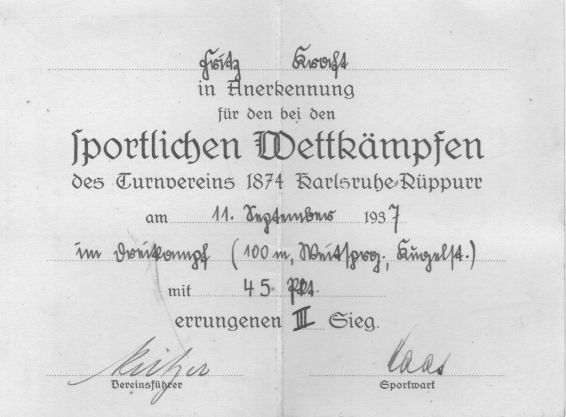 Fritz Kraft
in Anerkennung
für den bei den
sportlichen Wettkämpfen
des Turnvereins 1874 Karlsruhe-Rüppurr
am 11. September 1937
im Dreikampf (100 m, Weitsprg., Kugelst.)
mit 45 Pkt.
errungenen III Sieg.
Haas
Vereinsführer Sportwart